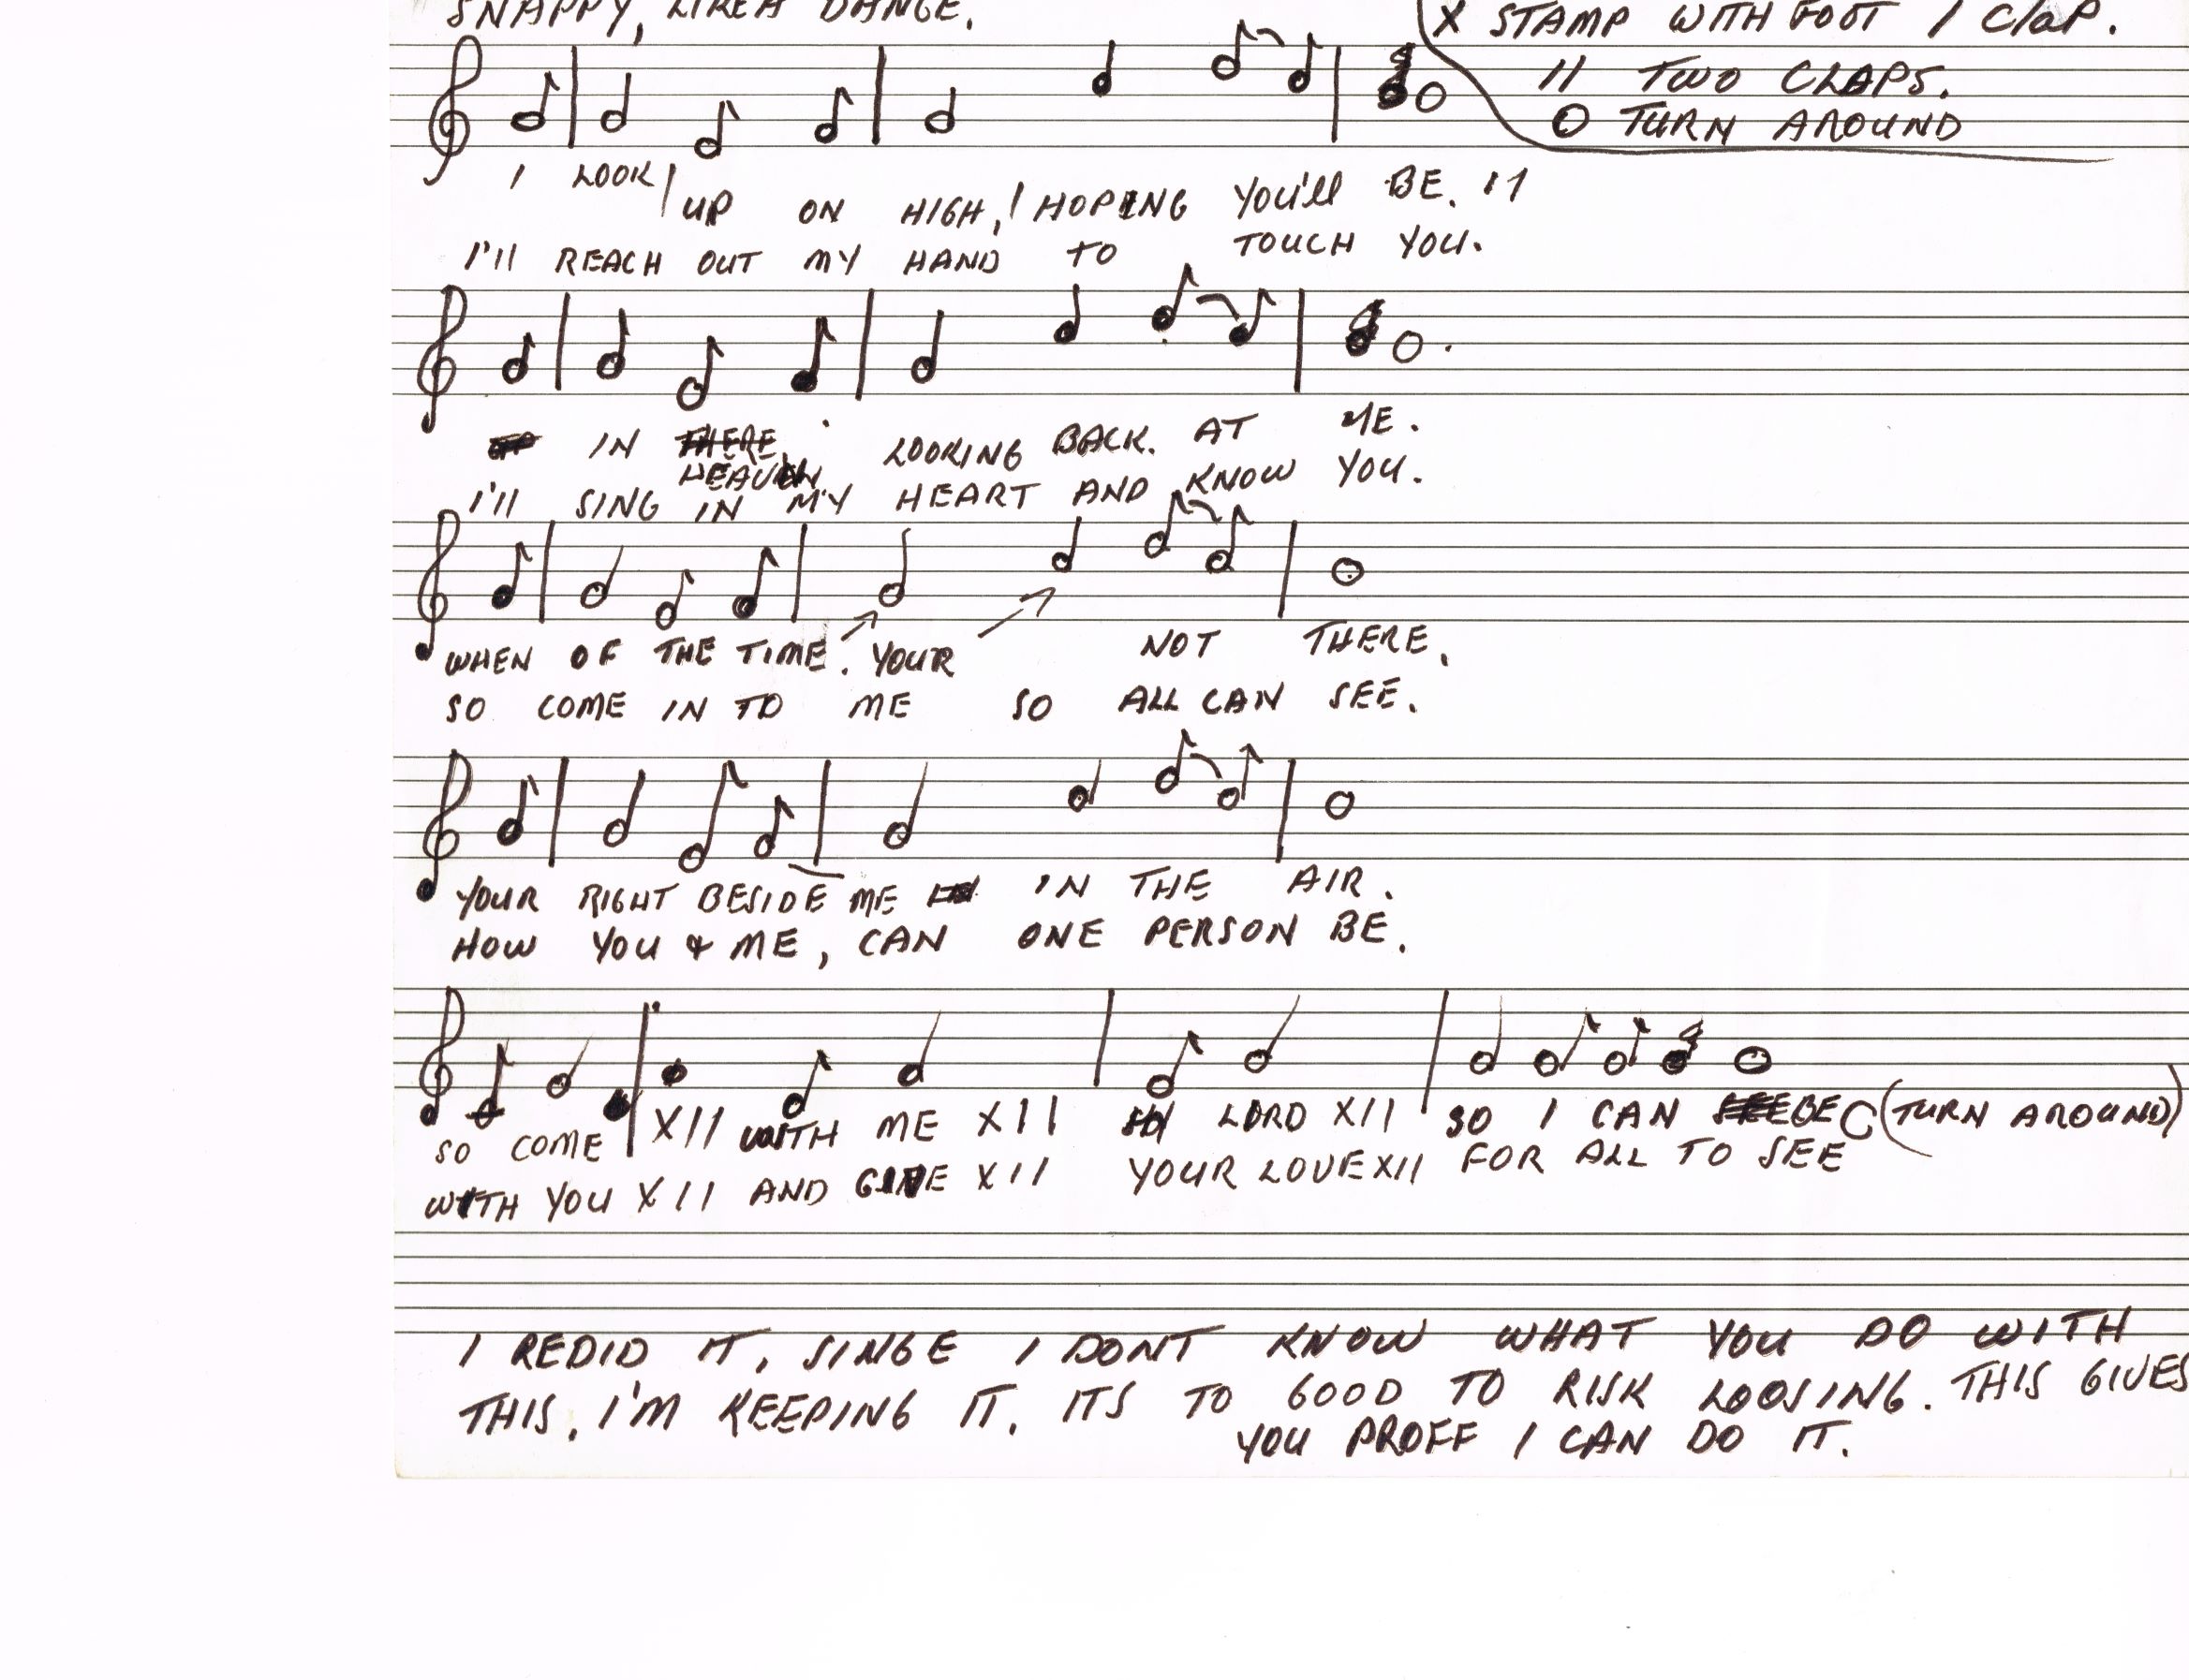 SNAPPY, LIKE A DANCE.
X STAMP WITH FOOT / ClaP.
// TWO CLAPS.
O TURN AROUND
I LOOK / UP ON HIGH, / HOPING YOU'll BE. 11
I'll REACH OUT MY HAND TO TOUCH YOU.
IN THERE LOOKING BACK. AT ME.
HEAVEN
I'll SING IN MY HEART AND KNOW YOU.
WHEN OF THE TIME. YOUR NOT THERE.
SO COME IN TO ME SO ALL CAN SEE.
YOUR RIGHT BESIDE ME IN THE AIR.
HOW YOU & ME, CAN ONE PERSON BE.
SO COME X// WITH ME X// LORD X// SO I CAN SEE BE (TURN AROUND)
WITH YOU X// AND GIVE X// YOUR LOVE X// FOR ALL TO SEE
I REDID IT, SINCE I DONT KNOW WHAT YOU DO WITH
THIS, I'M KEEPING IT. ITS TO GOOD TO RISK LOOSING. THIS GIVES
YOU PROFF I CAN DO IT.